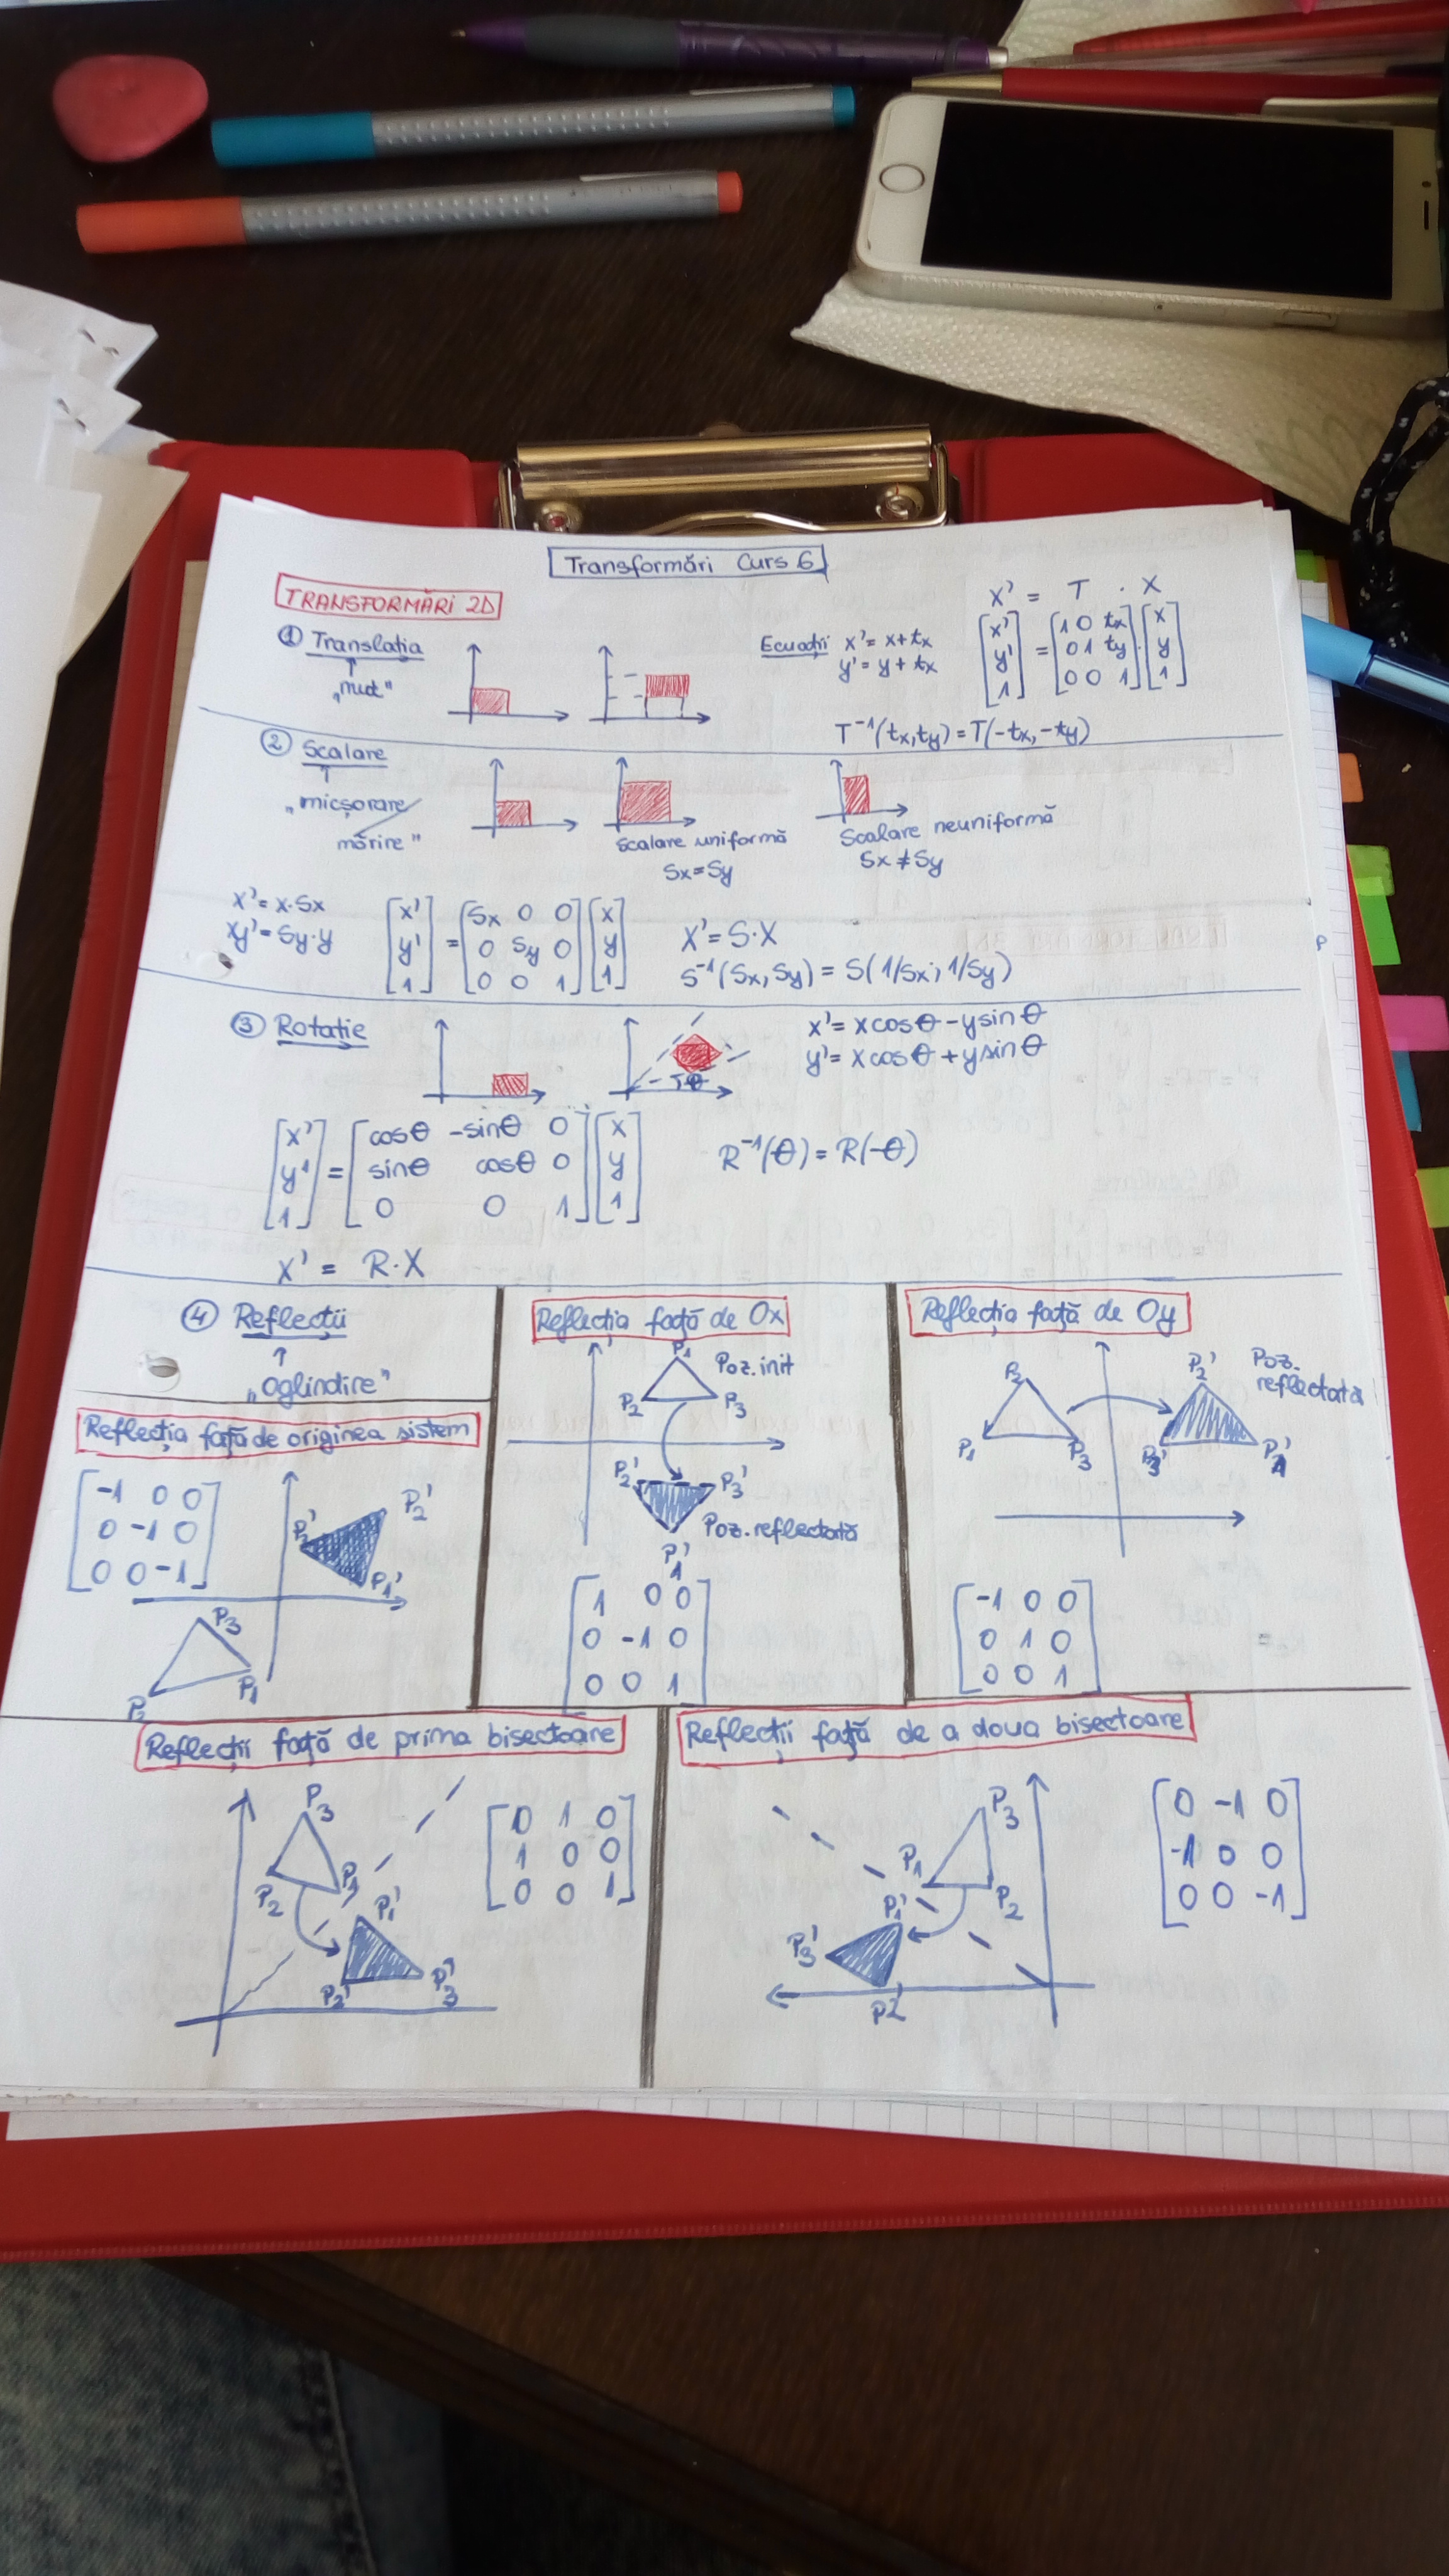 Transformări Curs 6
TRANSFORMĂRI 2D
① Translația
„mut”
Ecuații x' = x + tx
y' = y + tx
X' = T · X
[x' y' 1] = [1 0 tx; 0 1 ty; 0 0 1] · [x y 1]
T⁻¹(tx, ty) = T(-tx, -ty)
② Scalare
„micșorare/
mărire”
Scalare uniformă
Sx = Sy
Scalare neuniformă
Sx ≠ Sy
x' = x·Sx
y' = Sy·y
[x' y' 1] = [Sx 0 0; 0 Sy 0; 0 0 1] [x y 1]
X' = S·X
S⁻¹(Sx, Sy) = S(1/Sx; 1/Sy)
③ Rotatie
θ
x' = x cosθ - y sinθ
y' = x cosθ + y sinθ
[x' y' 1] = [cosθ -sinθ 0; sinθ cosθ 0; 0 0 1] [x y 1]
R⁻¹(θ) = R(-θ)
X' = R·X
④ Reflecții
„Oglindire”
Reflecția față de originea sistem
-1 0 0
0 -1 0
0 0 -1
P2'
P1'
P3
P1
P2
Reflecția față de Ox
P1
Poz. init
P2 P3
P2' P3'
Poz. reflectată
P1'
1 0 0
0 -1 0
0 0 1
Reflecția față de Oy
P2 P2' Poz.
reflectată
P1 P3 P3' P1'
-1 0 0
0 1 0
0 0 1
Reflecții față de prima bisectoare
P3
P2 P1
P1'
P2' P3'
0 1 0
1 0 0
0 0 1
Reflecții față de a doua bisectoare
P3
P1
P2
P1'
P3'
P2'
0 -1 0
-1 0 0
0 0 -1